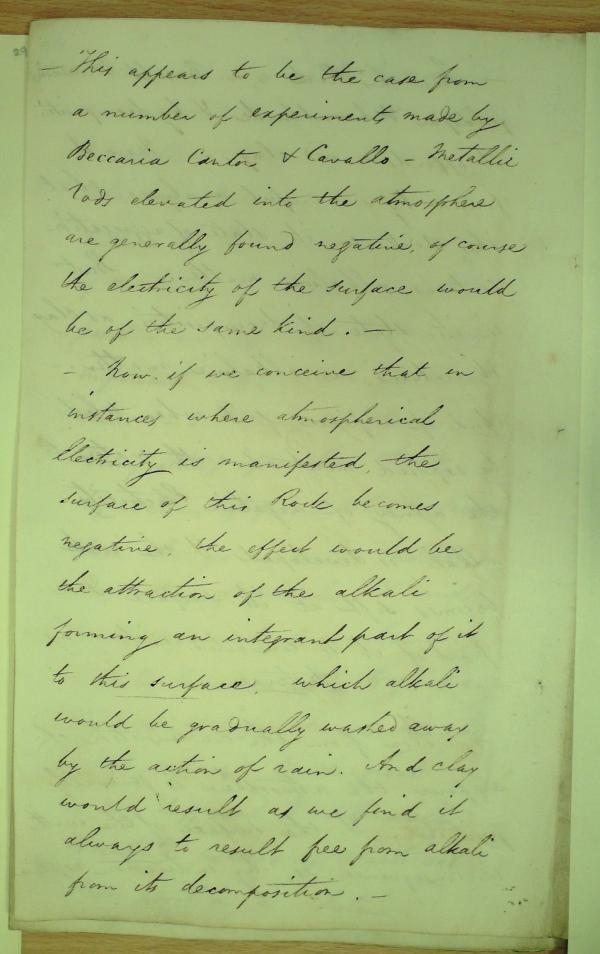 29
– This appears to be the case from
a number of experiments made by
Beccaria Canton & Cavallo – Metallic
rods elevated into the atmosphere
are generally found negative, of course
the electricity of the surface would
be of the same kind. –
– Now if we conceive that in
instances where atmospherical
Electricity is manifested, the
surface of this Rock becomes
negative, the effect would be
the attraction of the alkali
forming an integrant part of it
to this surface, which alkali
would be gradually washed away
by the action of rain. And clay
would result as we find it
always to result free from alkali
from its decomposition. –